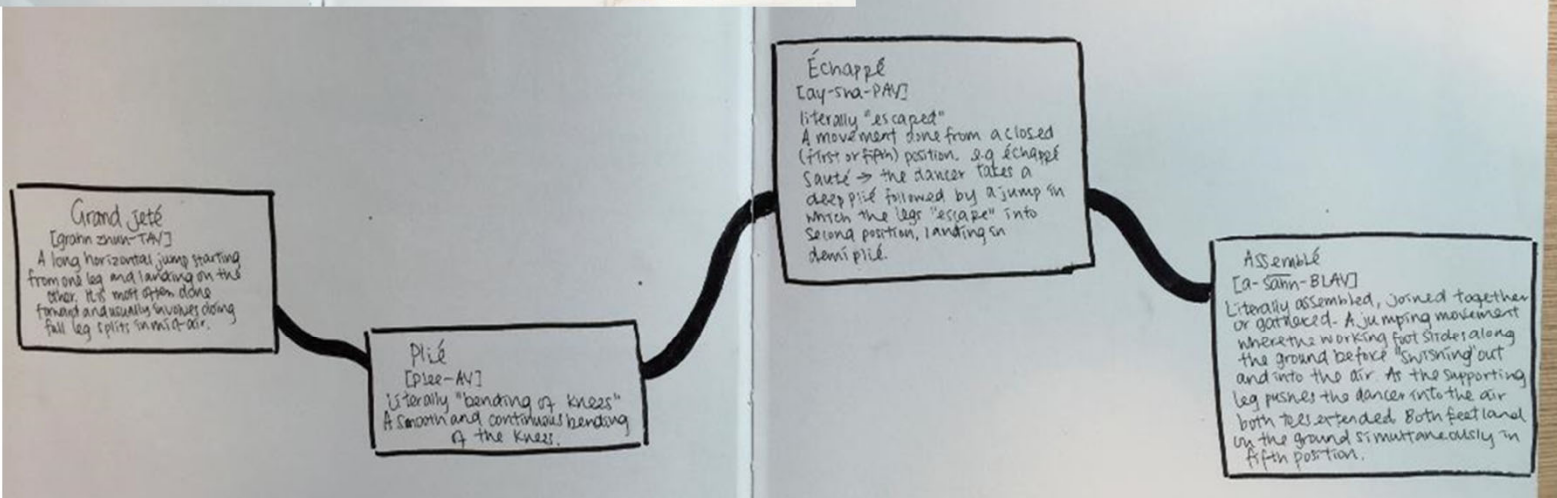 Grand jeté
[grahn zhuh-TAY]
A long horizontal jump starting
from one leg and landing on the
other. It is most often done
forward and usually involves doing
full leg splits in mid-air.
Plié
[plee-AY]
Literally "bending of knees"
A smooth and continuous bending
of the knees.
Échappé
[ay-sha-PAY]
literally "escaped"
A movement done from a closed
(first or fifth) position. e.g échappé
sauté → the dancer takes a
deep plié followed by a jump in
which the legs "escape" into
second position, landing in
demi plié.
Assemblé
[a-sahn-BLAY]
Literally assembled, joined together
or gathered. A jumping movement
where the working foot slides along
the ground before "swishing" out
and into the air. As the supporting
leg pushes the dancer into the air
both toes extended. Both feet land
on the ground simultaneously in
fifth position.